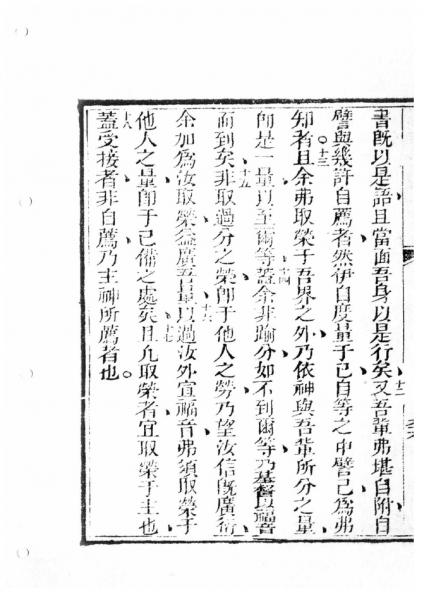 書既以是語且當面吾身以是行矣十二又吾輩弗堪自附自
譬與幾許自薦者然伊自度量于己自等之中譬己為弗
知者十三且余弗取榮于吾界之外乃依神與吾輩所分之量
即是一量以至爾等十四蓋余非踰分如不到爾等乃基督以福音
而到矣十五非取過分之榮即于他人之勞乃望汝信既廣衍
余加為汝取榮益廣吾量十六以過汝外宣福音弗須取榮于
他人之量即于已備之處矣十七且凢取榮者宜取榮于主也
十八蓋受接者非自薦乃主神所薦者也